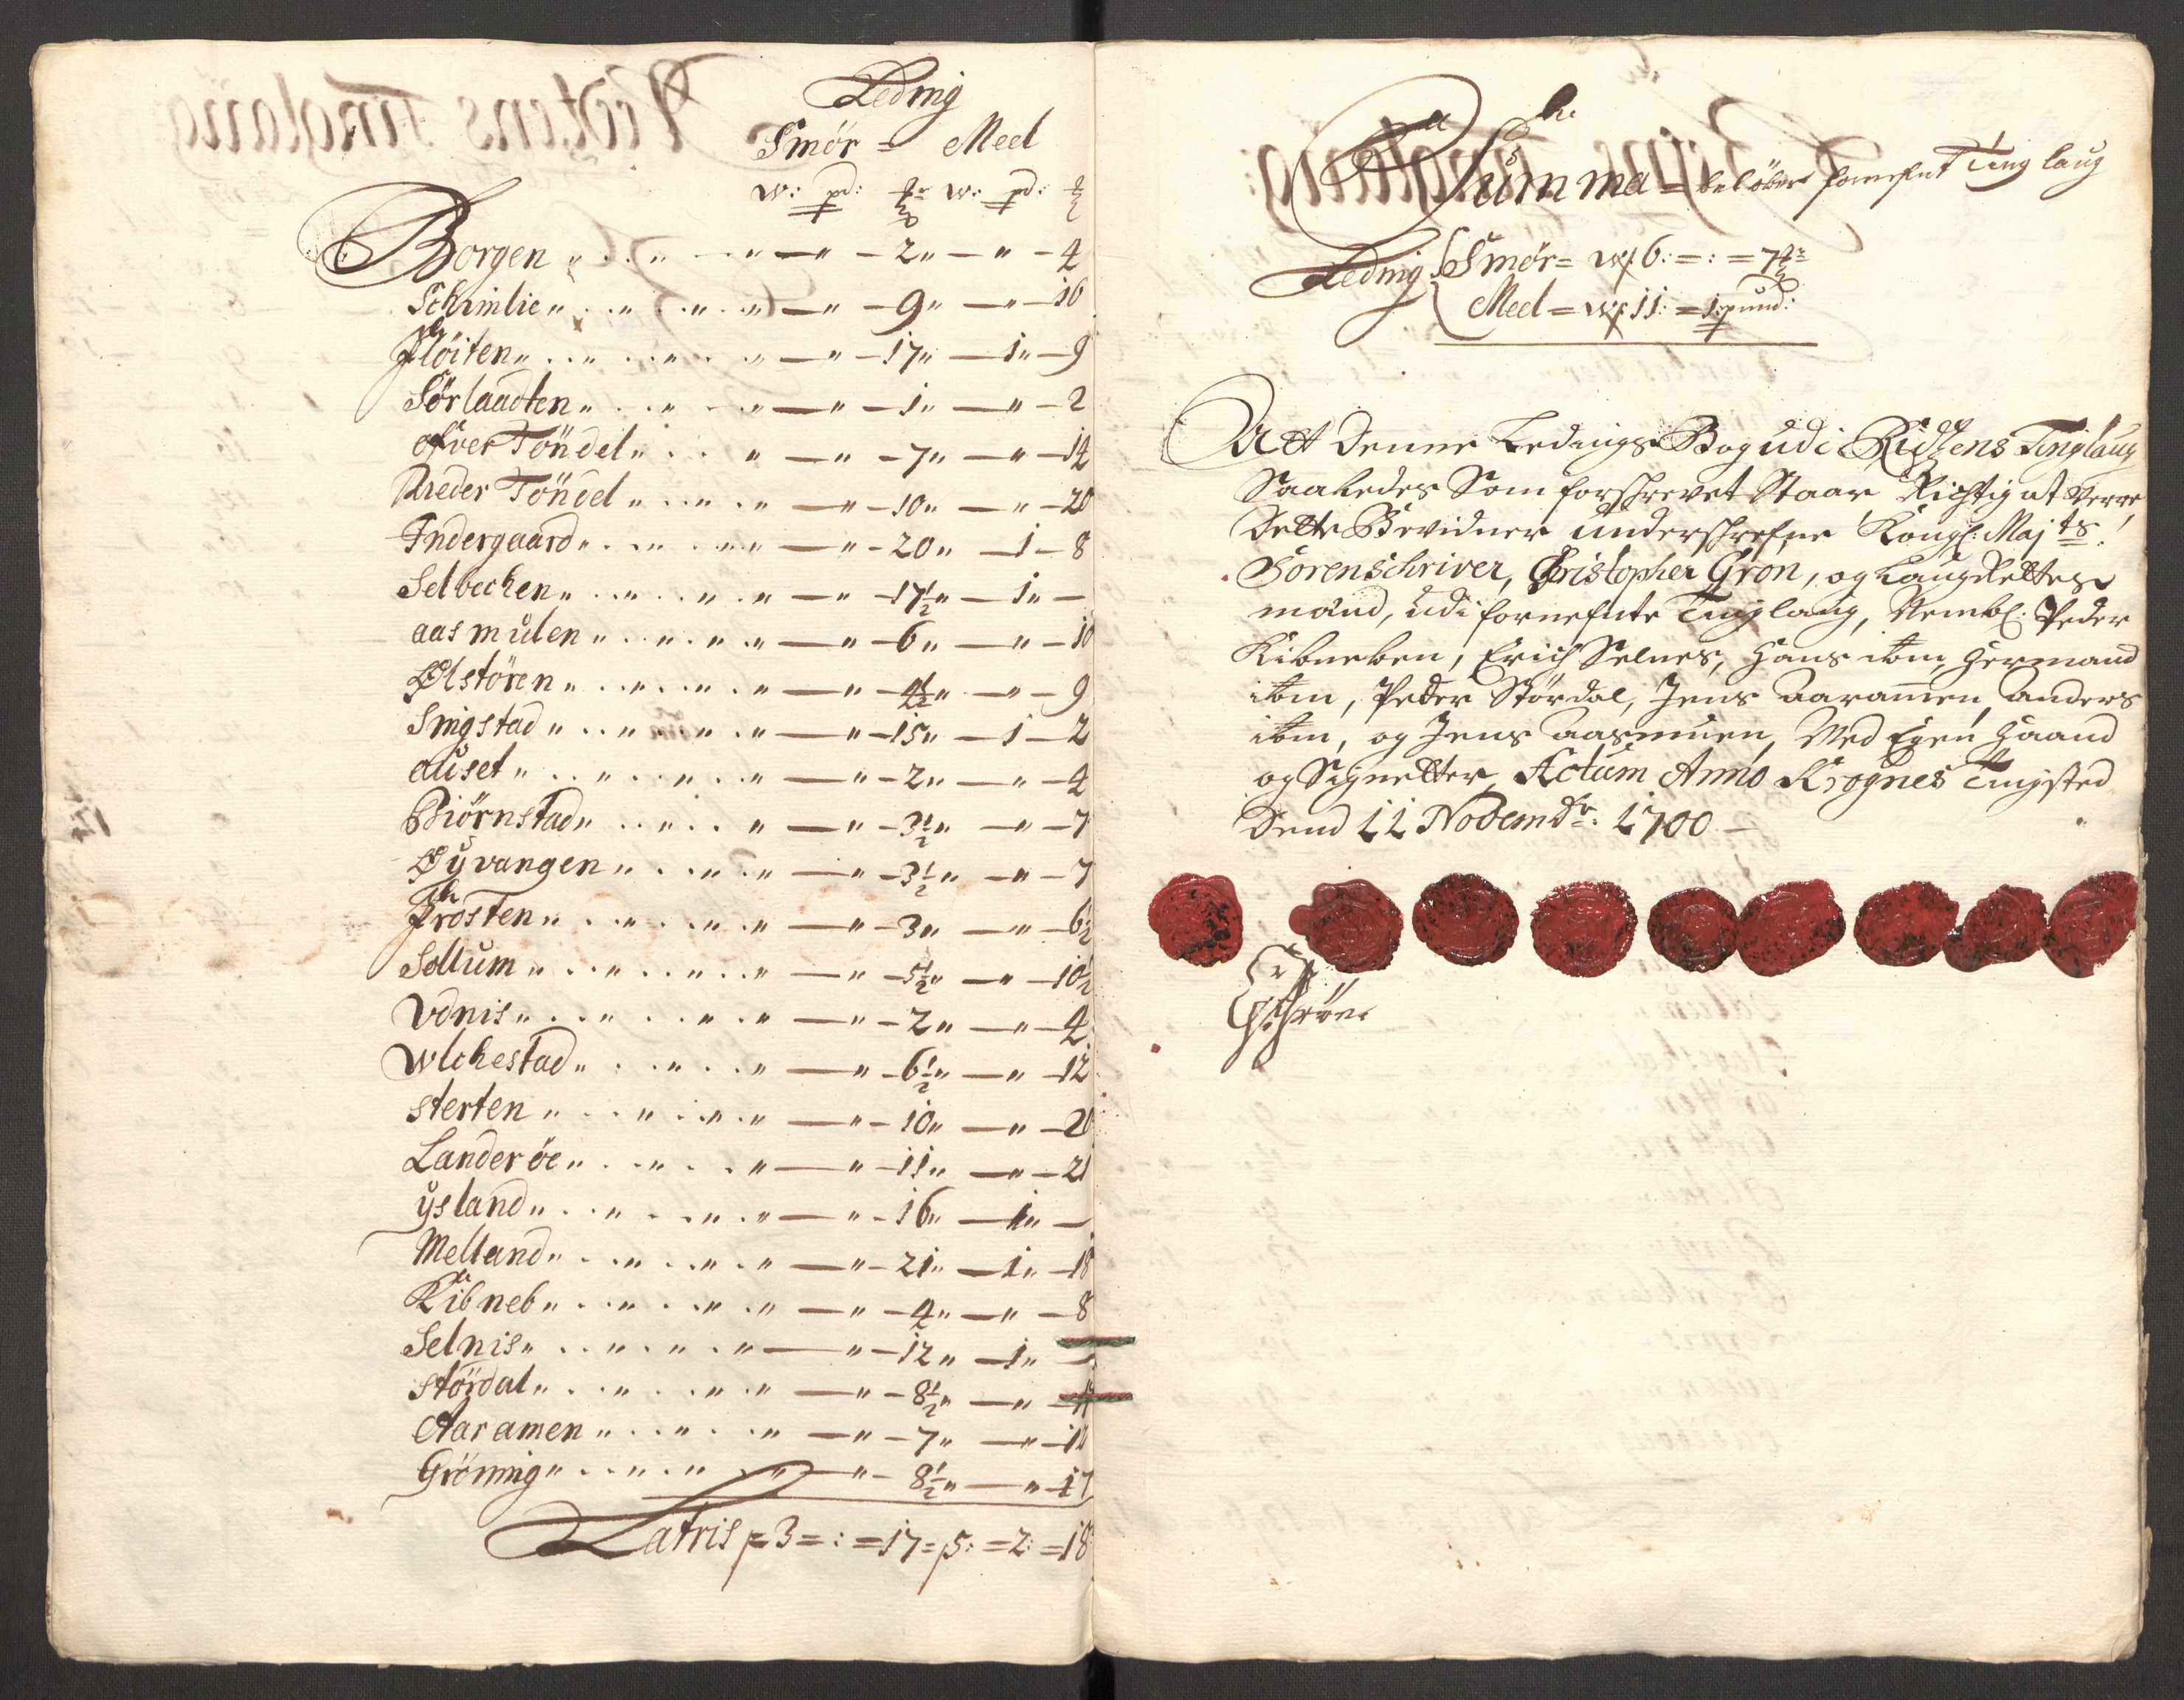 Leding
Smör = Meel
w: pd: w: pd:
Borgen " . . " - " — " - 2 " — " - 4
Schimlie " . . " . " . " — " - 9 " — " - 16
Flöiten " . . " . . " . " — " - 17 " — 1 " - 9
Sörlaadten " . . " - " — " - 1 " — " - 2
ofver Töndel " . . " — " - 7 " — " - 14
Neder Töndel " . . " . " — " - 10 " — " - 20
Indergaard " . . " . " — " - 20 " — 1 - 8
Selbechen " . . " . . " . " — " - 17½ " — 1 " —
aasmulen " . . " . " . " — " - 6 " — " - 10
Ølstören " . . " . . " . " — " - 4½ " — " - 9
Singstad " . . " . " . " — " - 15 " — 1 - 2
auset " . . " . . " . " — " - 2 " — " - 4
Biörnstad " . . " . . " — " - 3½ " — " - 7
Øyvangen " . . " . " — " - 3½ " — " - 7
Frösten " . . " . . " . " — " - 3 " — " - 6½
Sollum " . . " . . " . " — " - 5½ " — " - 10½
Vdnis " . . " . . " . " — " - 2 " — " - 4
Wlchestad " . . " . . " — " - 6½ " — " - 12
sterten " . . " . " . " — " - 10 " — " - 20
Landeröe " . . " . . " — " - 11 " — " - 21
ysland " . . " . . " . " — " - 16 " — 1 " —
Melland " . . " . . " . " — " - 21 " — 1 " - 18
Kibneb " . . " . . " . " — " - 4 " — " - 8
Selnis " . . " . " . " — " - 12 " — 1 " —
stördal " . . " . . " . " — " - 8½ " — "
Aaramen " . . " . . " — " - 7 " — "
Gröning " . . " . " . " — " - 8½ " — " - 17
Latris p = 3 = : = 17 = p 5: = 2: = 18
Summa = belöber fornefnt Ting laug
Leding Smör = w 6: = : = 7
Meel = w 11: = 1: pund:
Att Denne Ledings Bog udi Ridzens Tinglaug
Saaledes Som forschrevet Staar Rigtig at Verre,
Dette Bevidner underschrefne Kongl: Majts.
Sorenschriver, Christopher Grön, og Laugrettes
mænd, udi fornefnte Tinglaug, Nembl: Peder
Kibneben, Erich Selnes, Hans ibm, Hermand
ibm, Peder Stördal, Jens Aaramen, anders
ibm, og Jens aasmuen, Med Egen Haand
og Signetter, Actum Anno Krognes Tingsted
Dend 11 Novembr: 1700 —